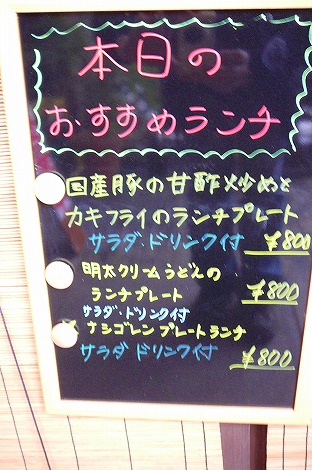 本日の
おすすめランチ
国産豚の甘酢炒めと
カキフライのランチプレート
サラダ・ドリンク付 ¥800
明太クリームうどんの
ランチプレート ¥800
サラダ・ドリンク付
ナシゴレンプレートランチ
サラダ ドリンク付 ¥800